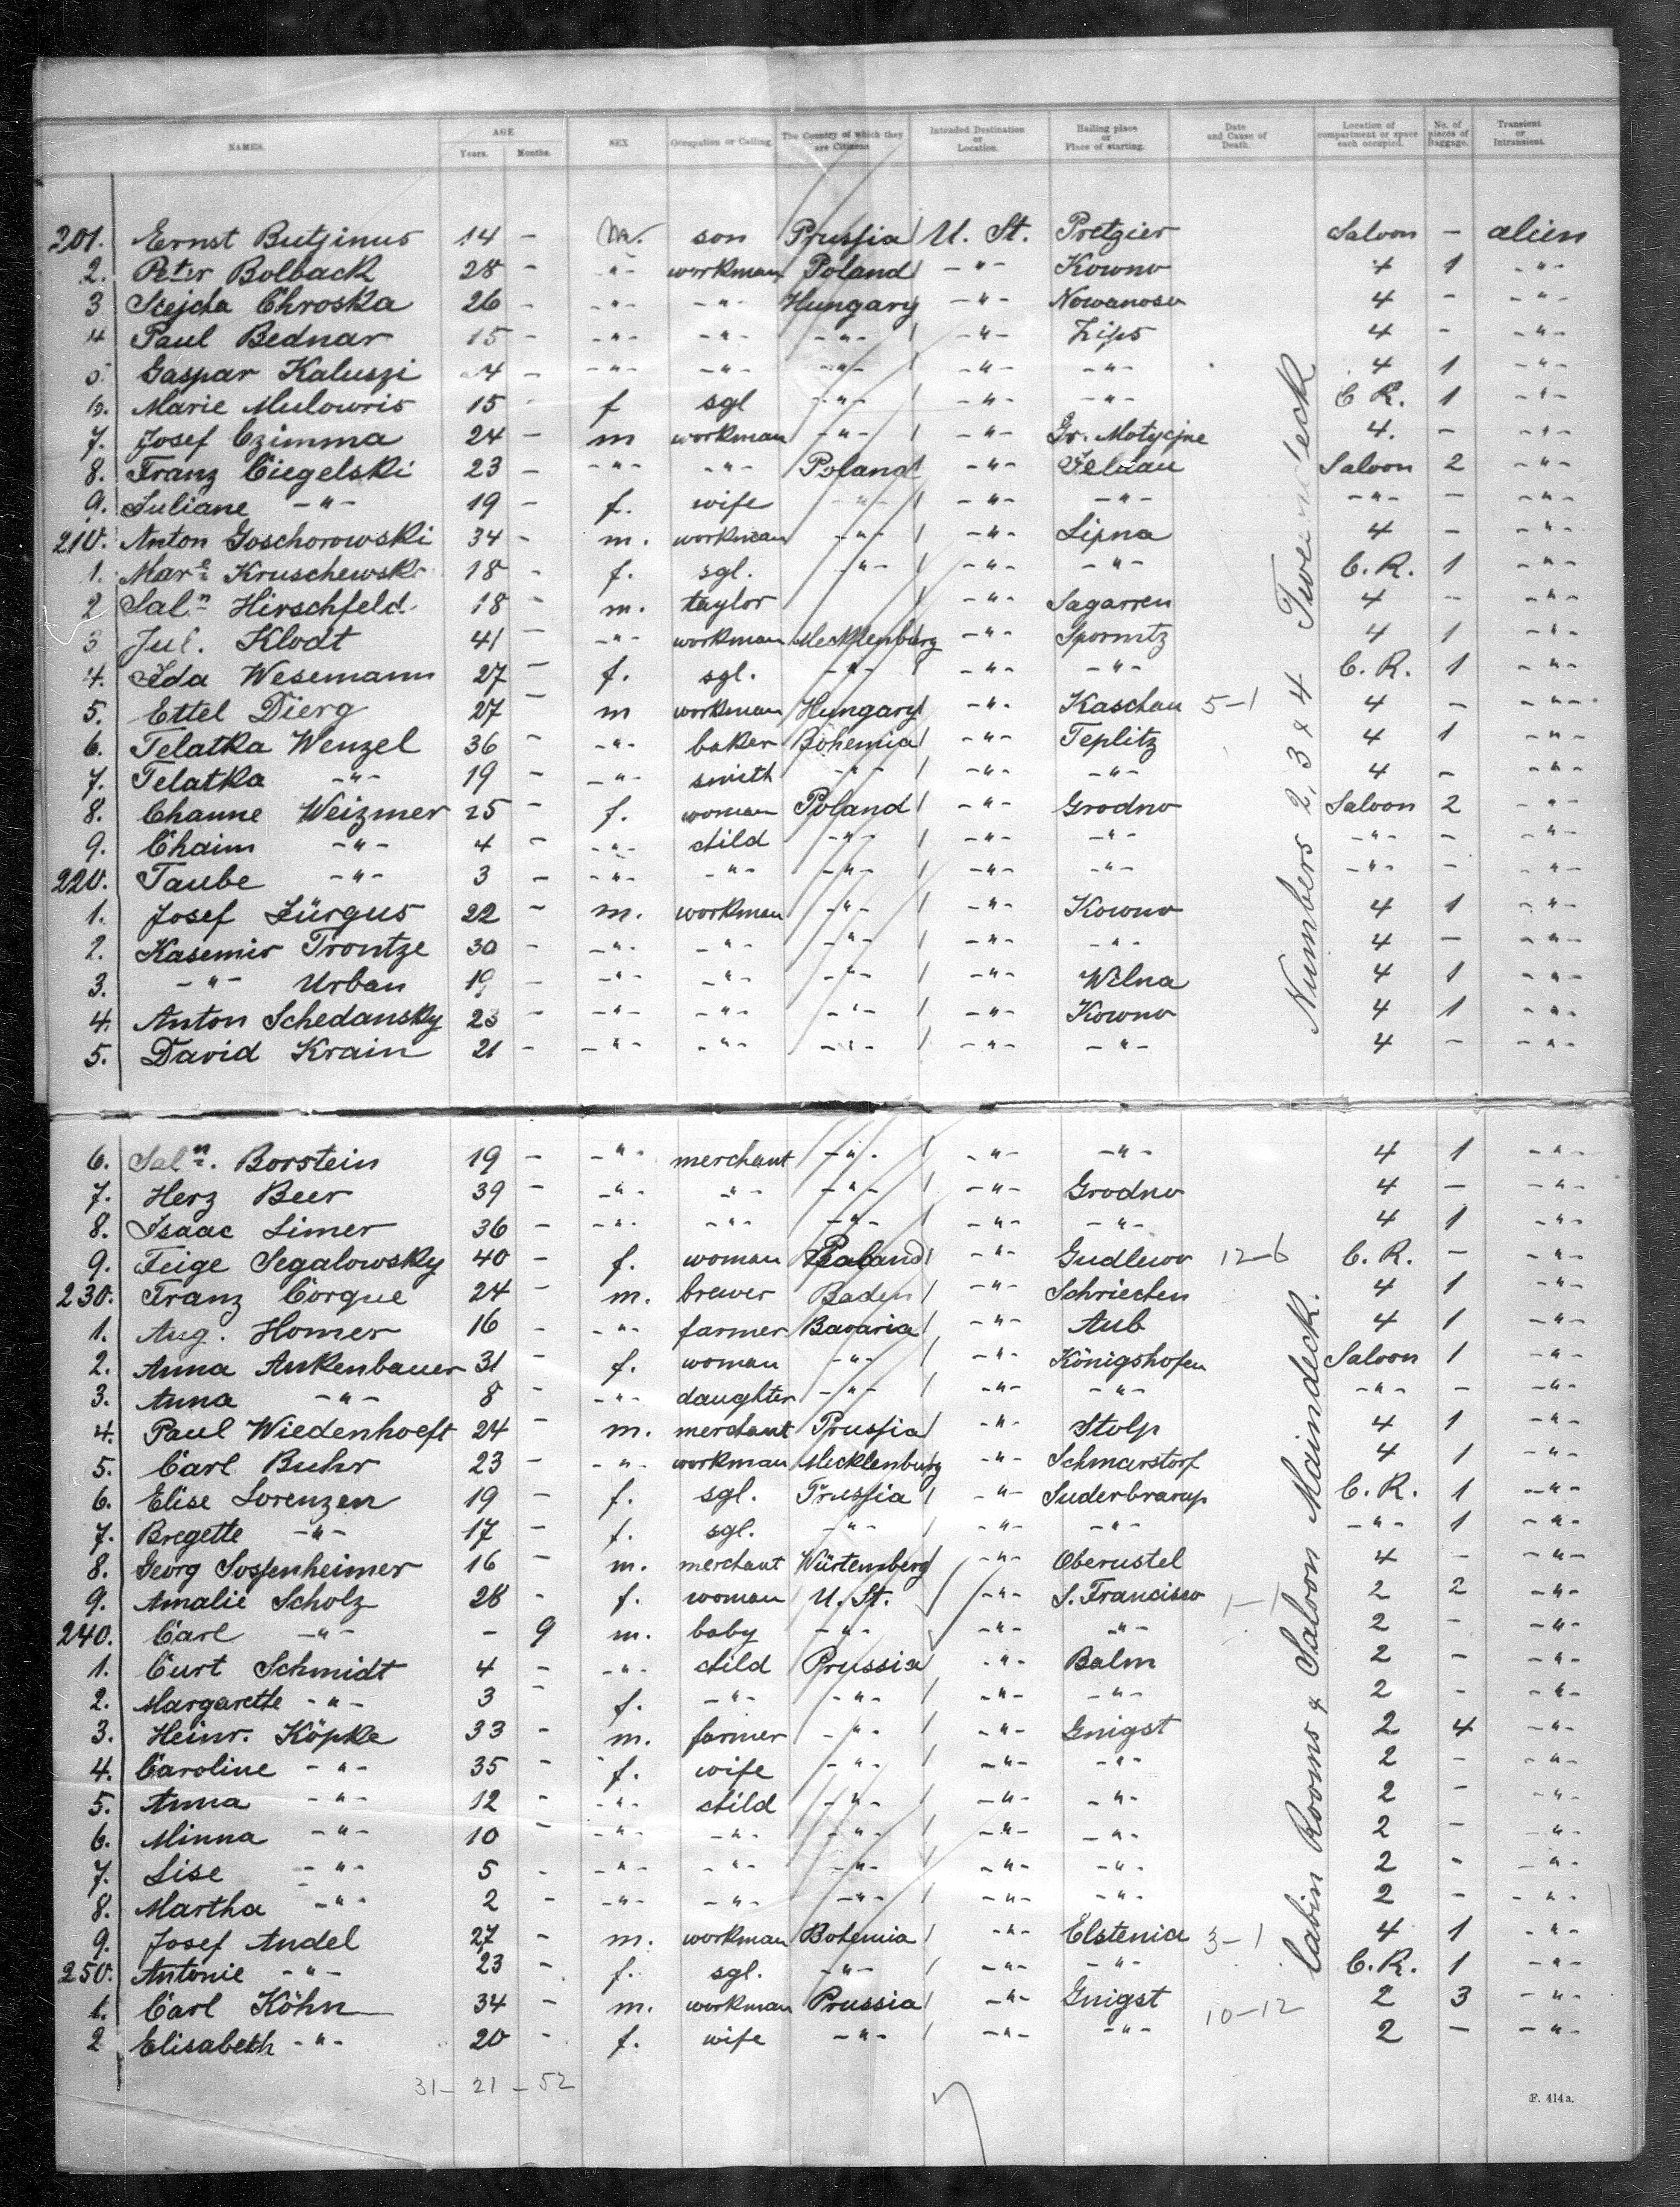 NAMES. AGE Years. Months. SEX Occupation or Calling. The Country of which they are Citizens Intended Destination or Location. Hailing place or Place of starting. Date and Cause of Death. Location of compartment or space each occupied. No. of pieces of Baggage. Transient or Intransient.
201. Ernst Butzinus 14 - m. son Prussia U. St. Pretzier Saloon - alien
2. Peter Bolback 28 - -"- workman Poland -"- Kowno 4 1 -"-
3 Stejcha Chroska 26 - -"- -"- Hungary -"- Nowanoso 4 - -"-
4 Paul Bednar 15 - -"- -"- -"- -"- Zips 4 - -"-
5. Gaspar Kaluszi 4 - -"- -"- -"- -"- -"- 4 1 -"-
6. Marie Mulowris 15 - f sgl -"- -"- -"- C R. 1 -"-
7. Josef Czimma 24 - m workman -"- -"- Gr. Motycjne 4. - -"-
8. Franz Ciegelski 23 - -"- -"- Poland -"- Veldau Saloon 2 -"-
9. Juliane -"- 19 - f. wife -"- -"- -"- -"- - -"-
210. Anton Goschorowski 34 - m. workman -"- -"- Lipna 4 - -"-
1. Mare Kruschewsk 18 - f. sgl. -"- -"- -"- C. R. 1 -"-
2 Saln Hirschfeld 18 - m. taylor -"- Sagarren 4 - -"-
3 Jul. Klodt 41 - -"- workman Mecklenburg -"- Spornitz 4 1 -"-
4. Ida Wesemann 27 - f. sgl. -"- -"- -"- C. R. 1 -"-
5. Ettel Dierg 27 - m workman Hungary -"- Kaschau 5-1 4 - -"-
6. Telatka Wenzel 36 - -"- baker Böhemia -"- Teplitz 4 1 -"-
7. Telatka -"- 19 - -"- smith -"- -"- -"- 4 - -"-
8. Channe Weizmer 25 - f. woman Poland -"- Grodno Saloon 2 -"-
9. Chaim -"- 4 - -"- child -"- -"- -"- -"- - -"-
220. Taube -"- 3 - -"- -"- -"- -"- -"- -"- - -"-
1. Josef Jürgus 22 - m. workman -"- -"- Kowno 4 1 -"-
2. Kasemir Trontze 30 - -"- -"- -"- -"- -"- 4 - -"-
3. -"- Urban 19 - -"- -"- -"- -"- Wilna 4 1 -"-
4. Anton Schedansky 23 - -"- -"- -"- -"- Kowno 4 1 -"-
5. David Krain 21 - -"- -"- -"- -"- -"- 4 - -"-
Numbers 2, 3 & 4 Tweendeck
6. Saln. Borstein 19 - -"- merchant -"- -"- -"- 4 1 -"-
7. Herz Beer 39 - -"- -"- -"- -"- Grodno 4 - -"-
8. Isaac Limer 36 - -"- -"- -"- -"- -"- 4 1 -"-
9. Feige Segalowsky 40 - f. woman Poland -"- Gudlewo 12-6 C. R. - -"-
230. Franz Corque 24 - m. brewer Baden -"- Schriechen 4 1 -"-
1. Aug. Homer 16 - -"- farmer Bavaria -"- Aub 4 1 -"-
2. Anna Ankenbauer 31 - f. woman -"- -"- Königshofen Saloon 1 -"-
3. Anna -"- 8 - -"- daughter -"- -"- -"- -"- - -"-
4. Paul Wiedenhoeft 24 - m. merchant Prussia -"- Stolp 4 1 -"-
5. Carl Buhr 23 - -"- workman Mecklenburg -"- Schmarstorf 4 1 -"-
6. Elise Lorenzen 19 - f. sgl. Prussia -"- Suderbrarup C. R. 1 -"-
7. Bregette -"- 17 - f. sgl. -"- -"- -"- -"- 1 -"-
8. Georg Sossenheimer 16 - m. merchant Würtemberg -"- Oberustel 4 - -"-
9. Amalie Scholz 28 - f. woman U. St. -"- S. Francisco 1-1 2 2 -"-
240. Carl -"- - 9 m. baby -"- -"- -"- 2 - -"-
1. Curt Schmidt 4 - -"- child Prussia -"- Balm 2 - -"-
2. Margarette -"- 3 - f. -"- -"- -"- -"- 2 - -"-
3. Heinr. Köpke 33 - m. farmer -"- -"- Gnigst 2 4 -"-
4. Caroline -"- 35 - f. wife -"- -"- -"- 2 - -"-
5. Anna -"- 12 - -"- child -"- -"- -"- 2 - -"-
6. Minna -"- 10 - -"- -"- -"- -"- -"- 2 - -"-
7. Lise -"- 5 - -"- -"- -"- -"- -"- 2 - -"-
8. Martha -"- 2 - -"- -"- -"- -"- -"- 2 - -"-
9. Josef Andel 27 - m. workman Bohemia -"- Elstenia 3-1 4 1 -"-
250. Antonie -"- 23 - f. sgl. -"- -"- -"- C. R. 1 -"-
1. Carl Köhn 34 - m. workman Prussia -"- Gnigst 10-12 2 3 -"-
2 Elisabeth -"- 20 - f. wife -"- -"- -"- 2 - -"-
Cabin Rooms & Saloon Maindeck.
31 - 21 - 52
F. 414a.